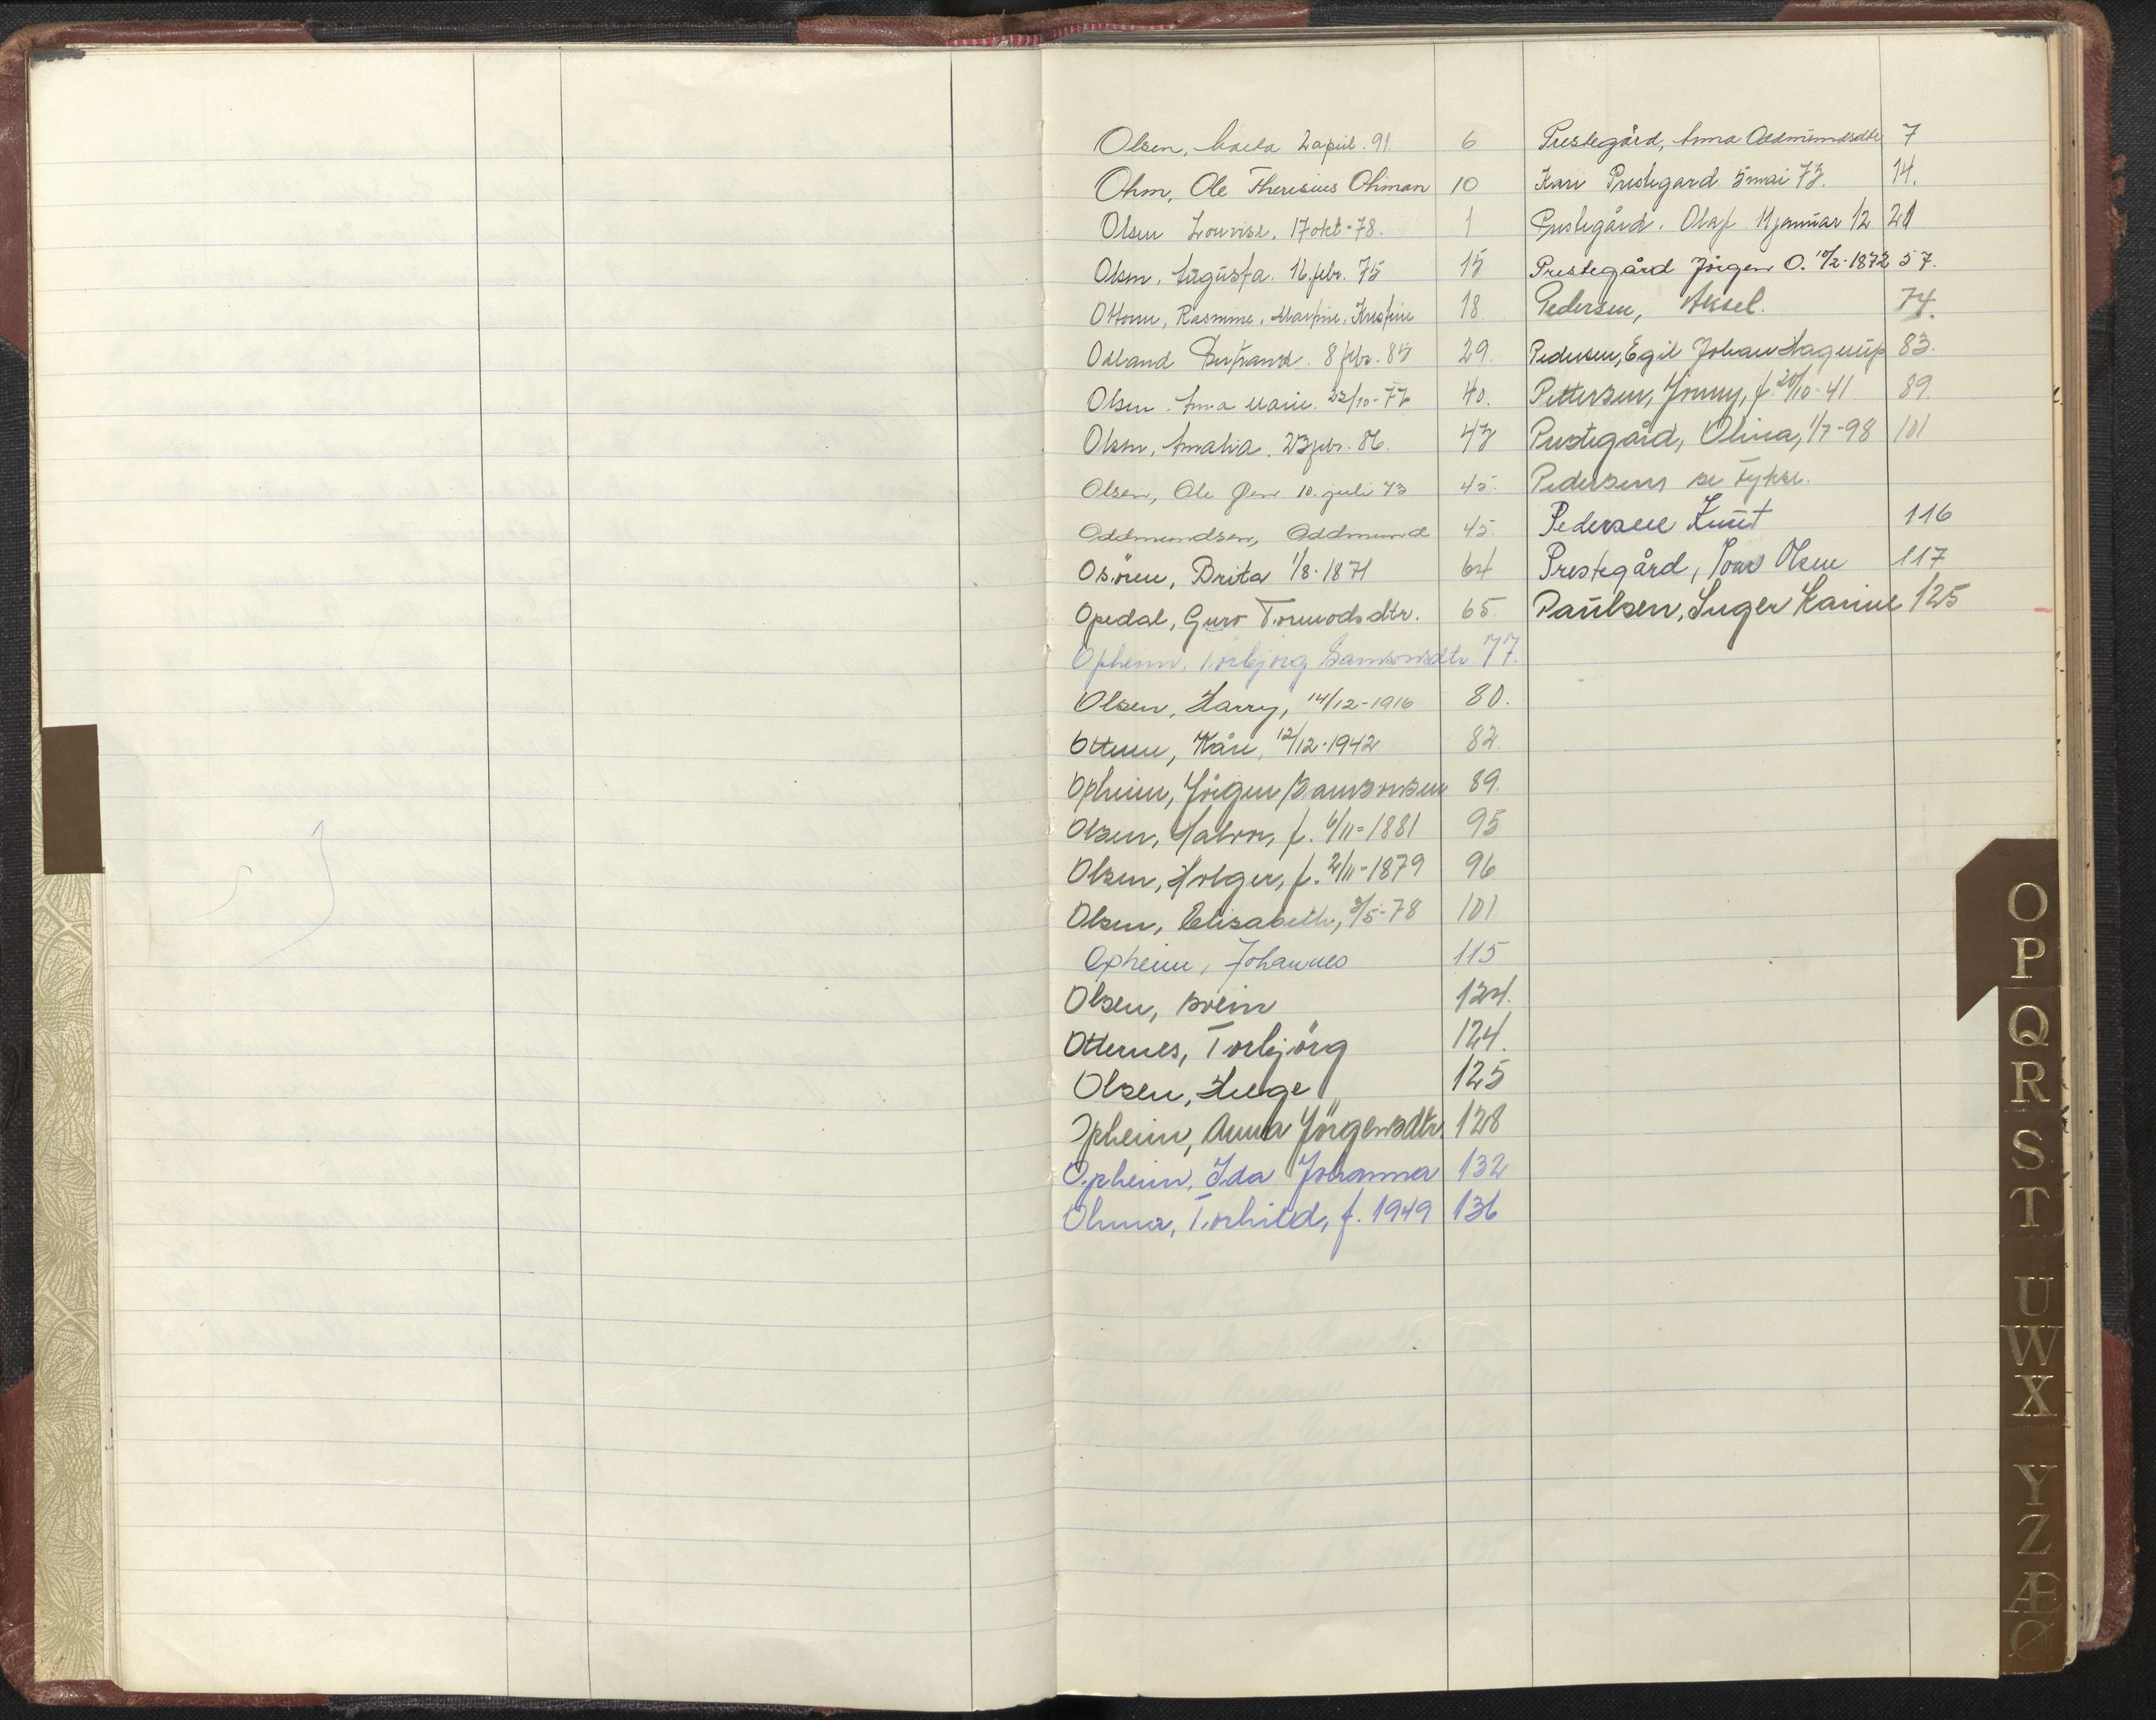 Olsen, 2 april. 91. 6
Ohm, Ole Theresius Ohman 10
Olsen Lovise. 17 okt - 78. 1
Olsen, Augusta. 16 febr. 75 15
Ottesen, Rasmine, 18
Odland Bertrand. 8 febr. 85 29.
Olsen. Anna Marie. 22/10 - 76 40.
Olsen, Amalia. 23 febr. 86. 43
Olsen, Ole 10. juli 73 45.
Oddmundsen, Oddmund 45.
Osören, Brita 1/8-1871 64
Opedal, Guro Tormodsdtr. 65.
Opheim, Torbjörg Samsonsdtr. 77.
Olsen, Harry, 14/12-1916 80.
Kåre, 12/12-1942 82.
Opheim, Jörgen Samsonsen 89.
Olsen, Halvor, f. 6/11-1881 95
Olsen, Holger, f. 2/11-1879 96
Olsen, Elisabeth, 3/5-78 101
Opheim, Johannes 115
Olsen, Svein 124.
Otternes, Torbjörg 124.
Olsen, Hege 125
Opheim, Anna Jörgensdtr 128
Opheim, Ida Johanna 132
Torhild, f. 1949 136
Prestegård, Anna Oddmundsdtr 7
Kari Prestegard 5 mai 73. 14.
Prestegård. Olaf 11 januar 12 21
Prestegård Jörgen O. 10/2-1872 57.
Pedersen, Aksel. 74.
Pedersen, Egil Johan Hagerup 83.
Pettersen, Jonny, f. 20/10-41 89.
Prestegård, Olina, 1/7-98 101
Pedersens se Fykse.
Pedersen Knut 116
Prestegård, Olsen 117
Paulsen, Inger Karine 125
O
P
Q
R
S
T
U
W
X
Y
Z
Æ
Ø